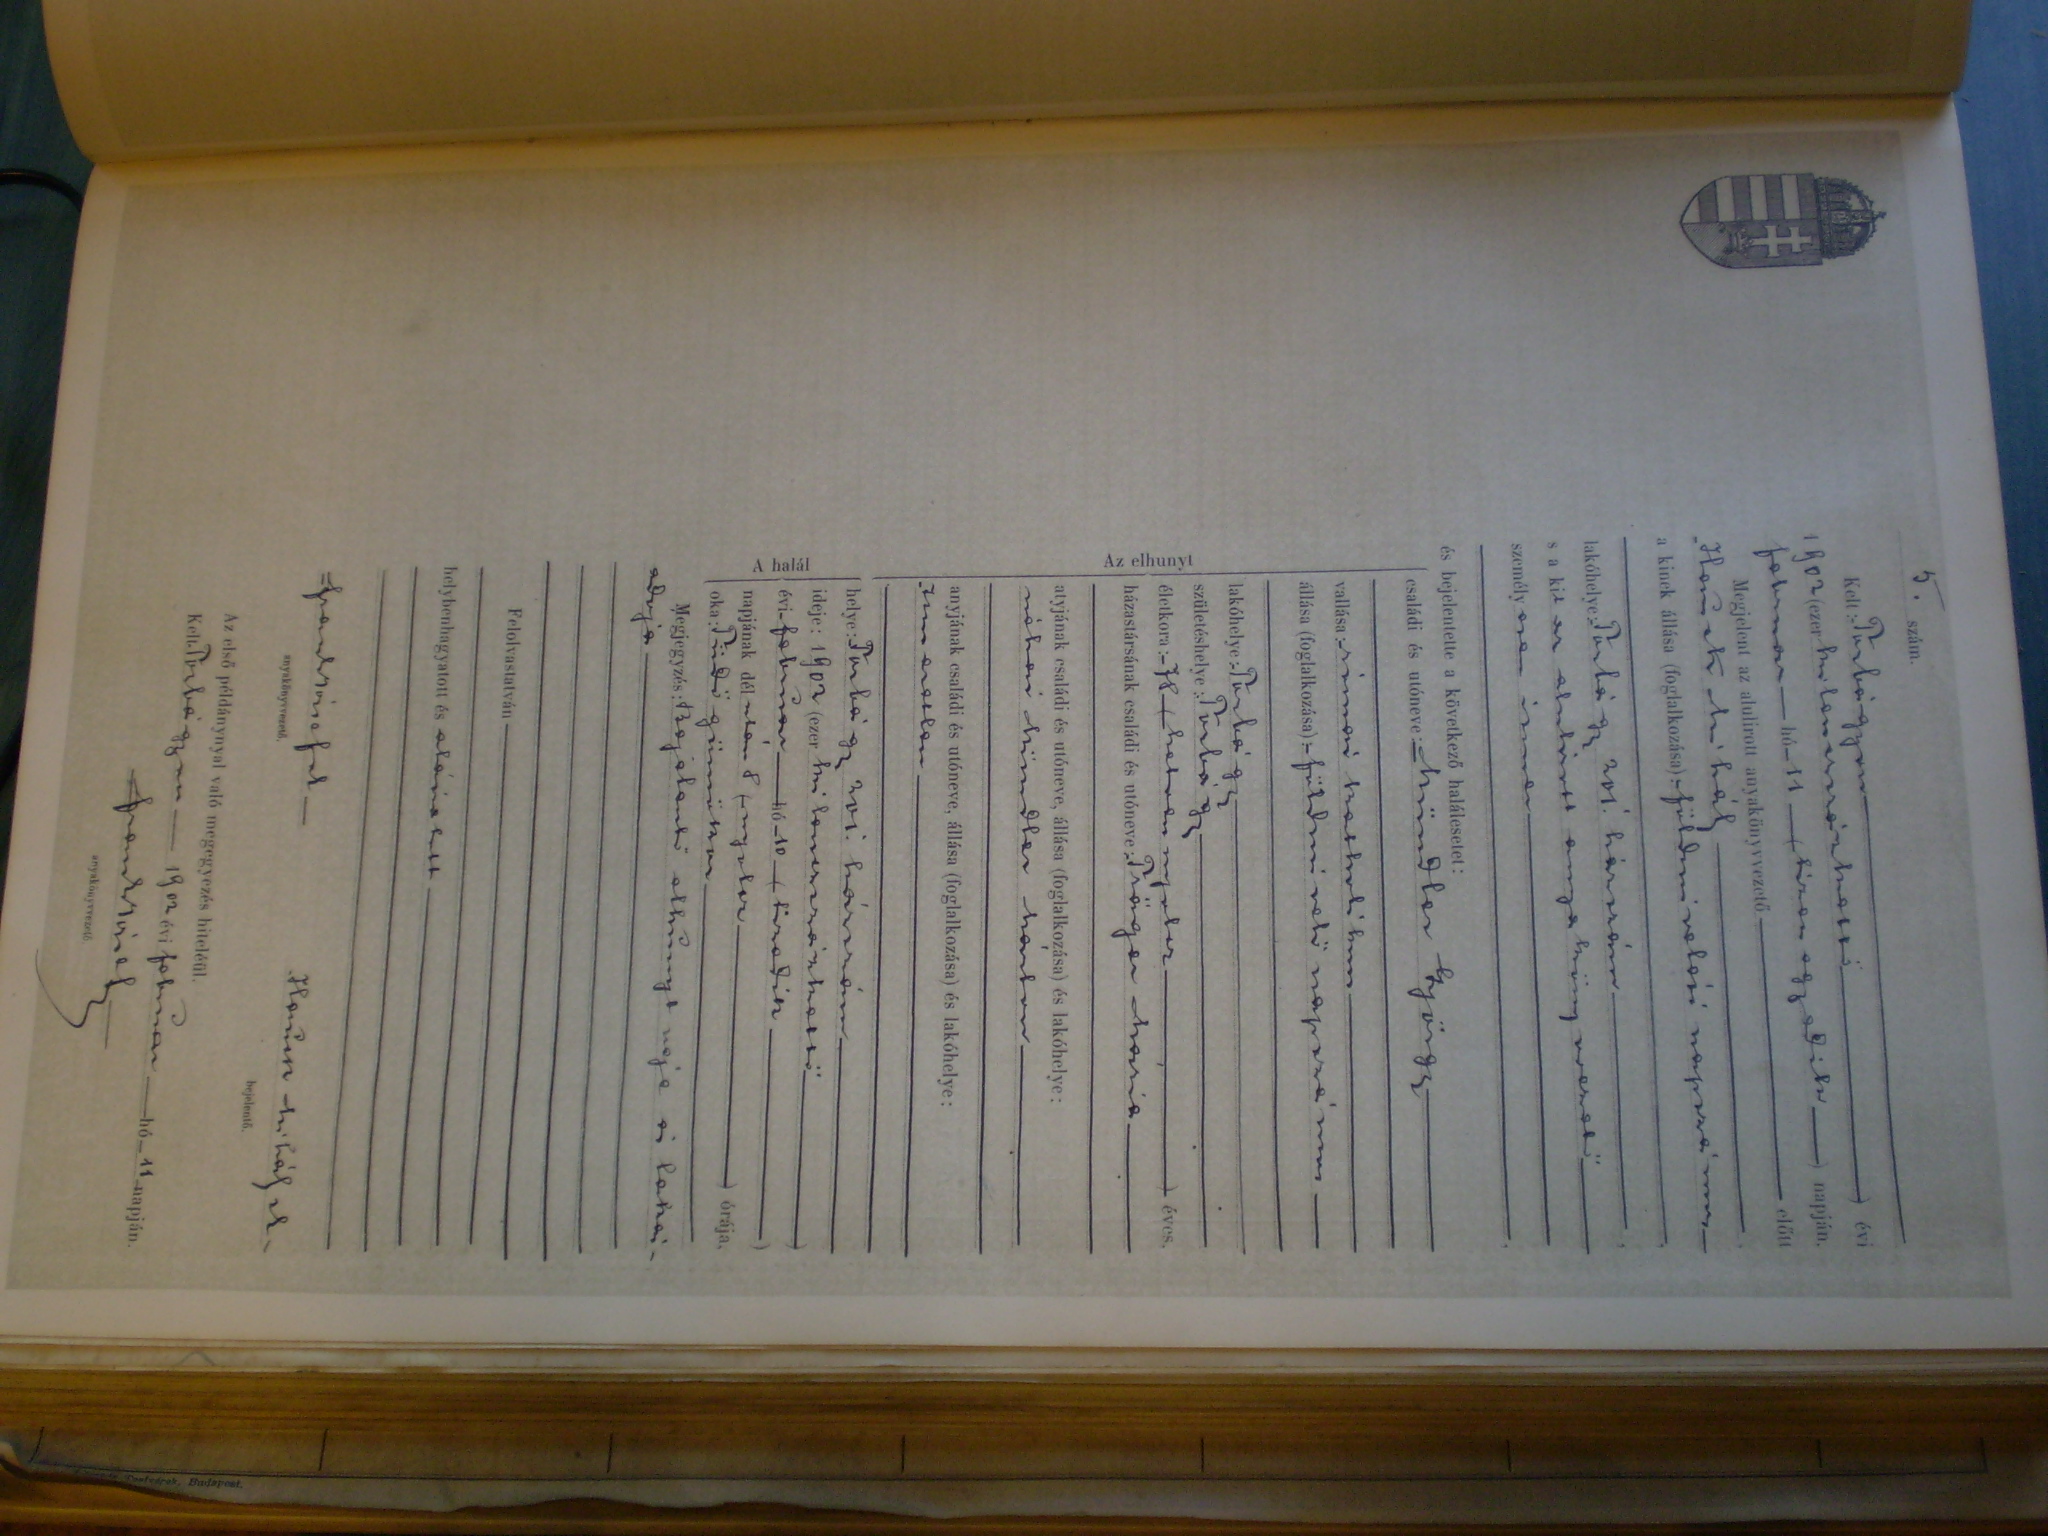 5. szám.
Kelt: Torbágyon ) évi
1902 (ezer kilencszázkettő
február hó 11 (tizenegyedik ) napján.
Megjelent az alulirott anyakönyvvezető előtt
mihály földmivelési napszámos
a kinek állása (foglalkozása):
lakóhelye: Torbágy 201. házszám
s a kit az alulirott anyakönyvvezető
személyesen ismer
és bejelentette a következő halálesetet:
családi és utóneve: György
vallása: római katholikus
állása (foglalkozása): földmivelő napszámos
Az elhunyt
lakóhelye: Torbágy
születéshelye: Torbágy
életkora: 78 (hetvennyolcz ) éves.
házastársának családi és utóneve: mária
atyjának családi és utóneve, állása (foglalkozása) és lakóhelye:
néhai
anyjának családi és utóneve, állása (foglalkozása) és lakóhelye:
ismeretlen
A halál
helye: Torbágy 201. házszám
ideje: 1902 (ezer kilencszázkettő )
évi február hó 10 (tizedik )
napjának dél után 8 (nyolcz ) órája.
oka: Tüdő gümőkór
Megjegyzés: Bejelentő elhunyt veje és lakás-
adója
Felolvastatván
helybenhagyatott és aláíratott
anyakönyvvezető. mihály sk.
bejelentő.
Az első példánynyal való megegyezés hiteléül.
Kelt: Torbágyon 1902 évi február hó 11 napján.
anyakönyvvezető
Budapest.